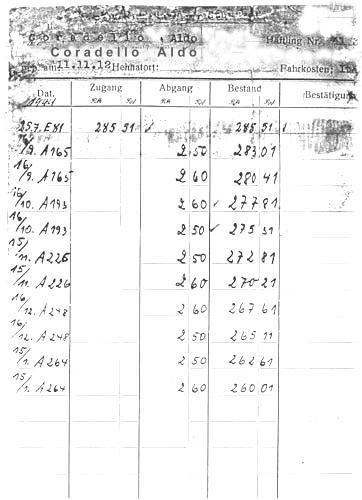 Coradello, Aldo
Coradello Aldo Häftling Nr.
am: 11.11.12 Heimatort: Fahrkosten:
Dat. Zugang Abgang Bestand Bestätigung
1944 RM Rpf RM Rpf RM Rpf
25.7. E81 285 51 285 51
16/9. A165 2 50 283 01
16/9. A165 2 60 280 41
16/10. A193 2 60 277 81
16/10. A193 2 50 275 31
15/11. A226 2 50 272 81
15/11. A226 2 60 270 21
16/12. A248 2 60 267 61
16/12. A248 2 50 265 11
15/1. A264 2 50 262 61
15/1. A264 2 60 260 01